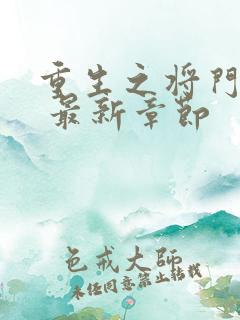 重生之将门
最新章节
色戒大师
未经同意禁止转载